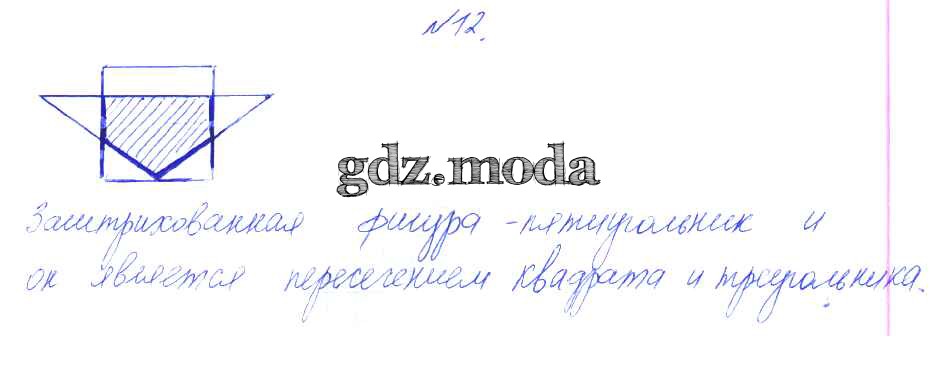 №12.
gdz.moda
Заштрихованная фигура - пятиугольник и
он является пересечением квадрата и треугольника.